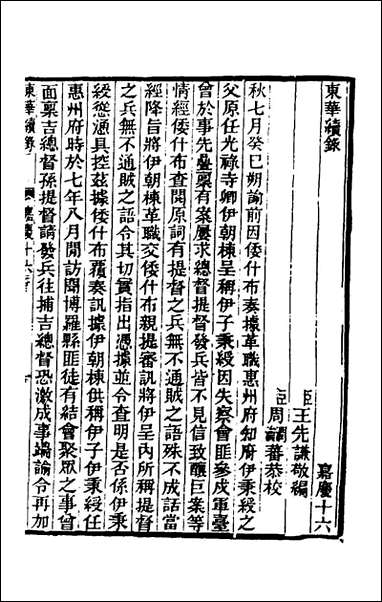 東華續錄
嘉慶十六
臣王先謙敬編
臣周潤蕃恭校
秋七月癸巳朔諭前因倭什布奏據革職惠州府知府伊秉綬之
父原任光祿寺卿伊朝棟呈稱伊子秉綬因失察會匪參戍軍臺
曾於事先疊稟有案屢求總督提督發兵皆不見信致釀巨案等
情經倭什布查閱原詞有提督之兵無不通賊之語殊不成話當
經降旨將伊朝棟革職交倭什布親提審訊將伊呈內所稱提督
之兵無不通賊之語令其切實指出憑據並令查明是否係伊秉
綬慫慂具控茲據倭什布覆奏訊據伊朝棟供稱伊子伊秉綬任
惠州府時於七年八月聞訪聞博羅縣匪徒有結會聚眾之事曾
面稟吉總督孫提督請發兵往捕吉總督恐激成事端諭令再加
東華續錄 嘉慶十六